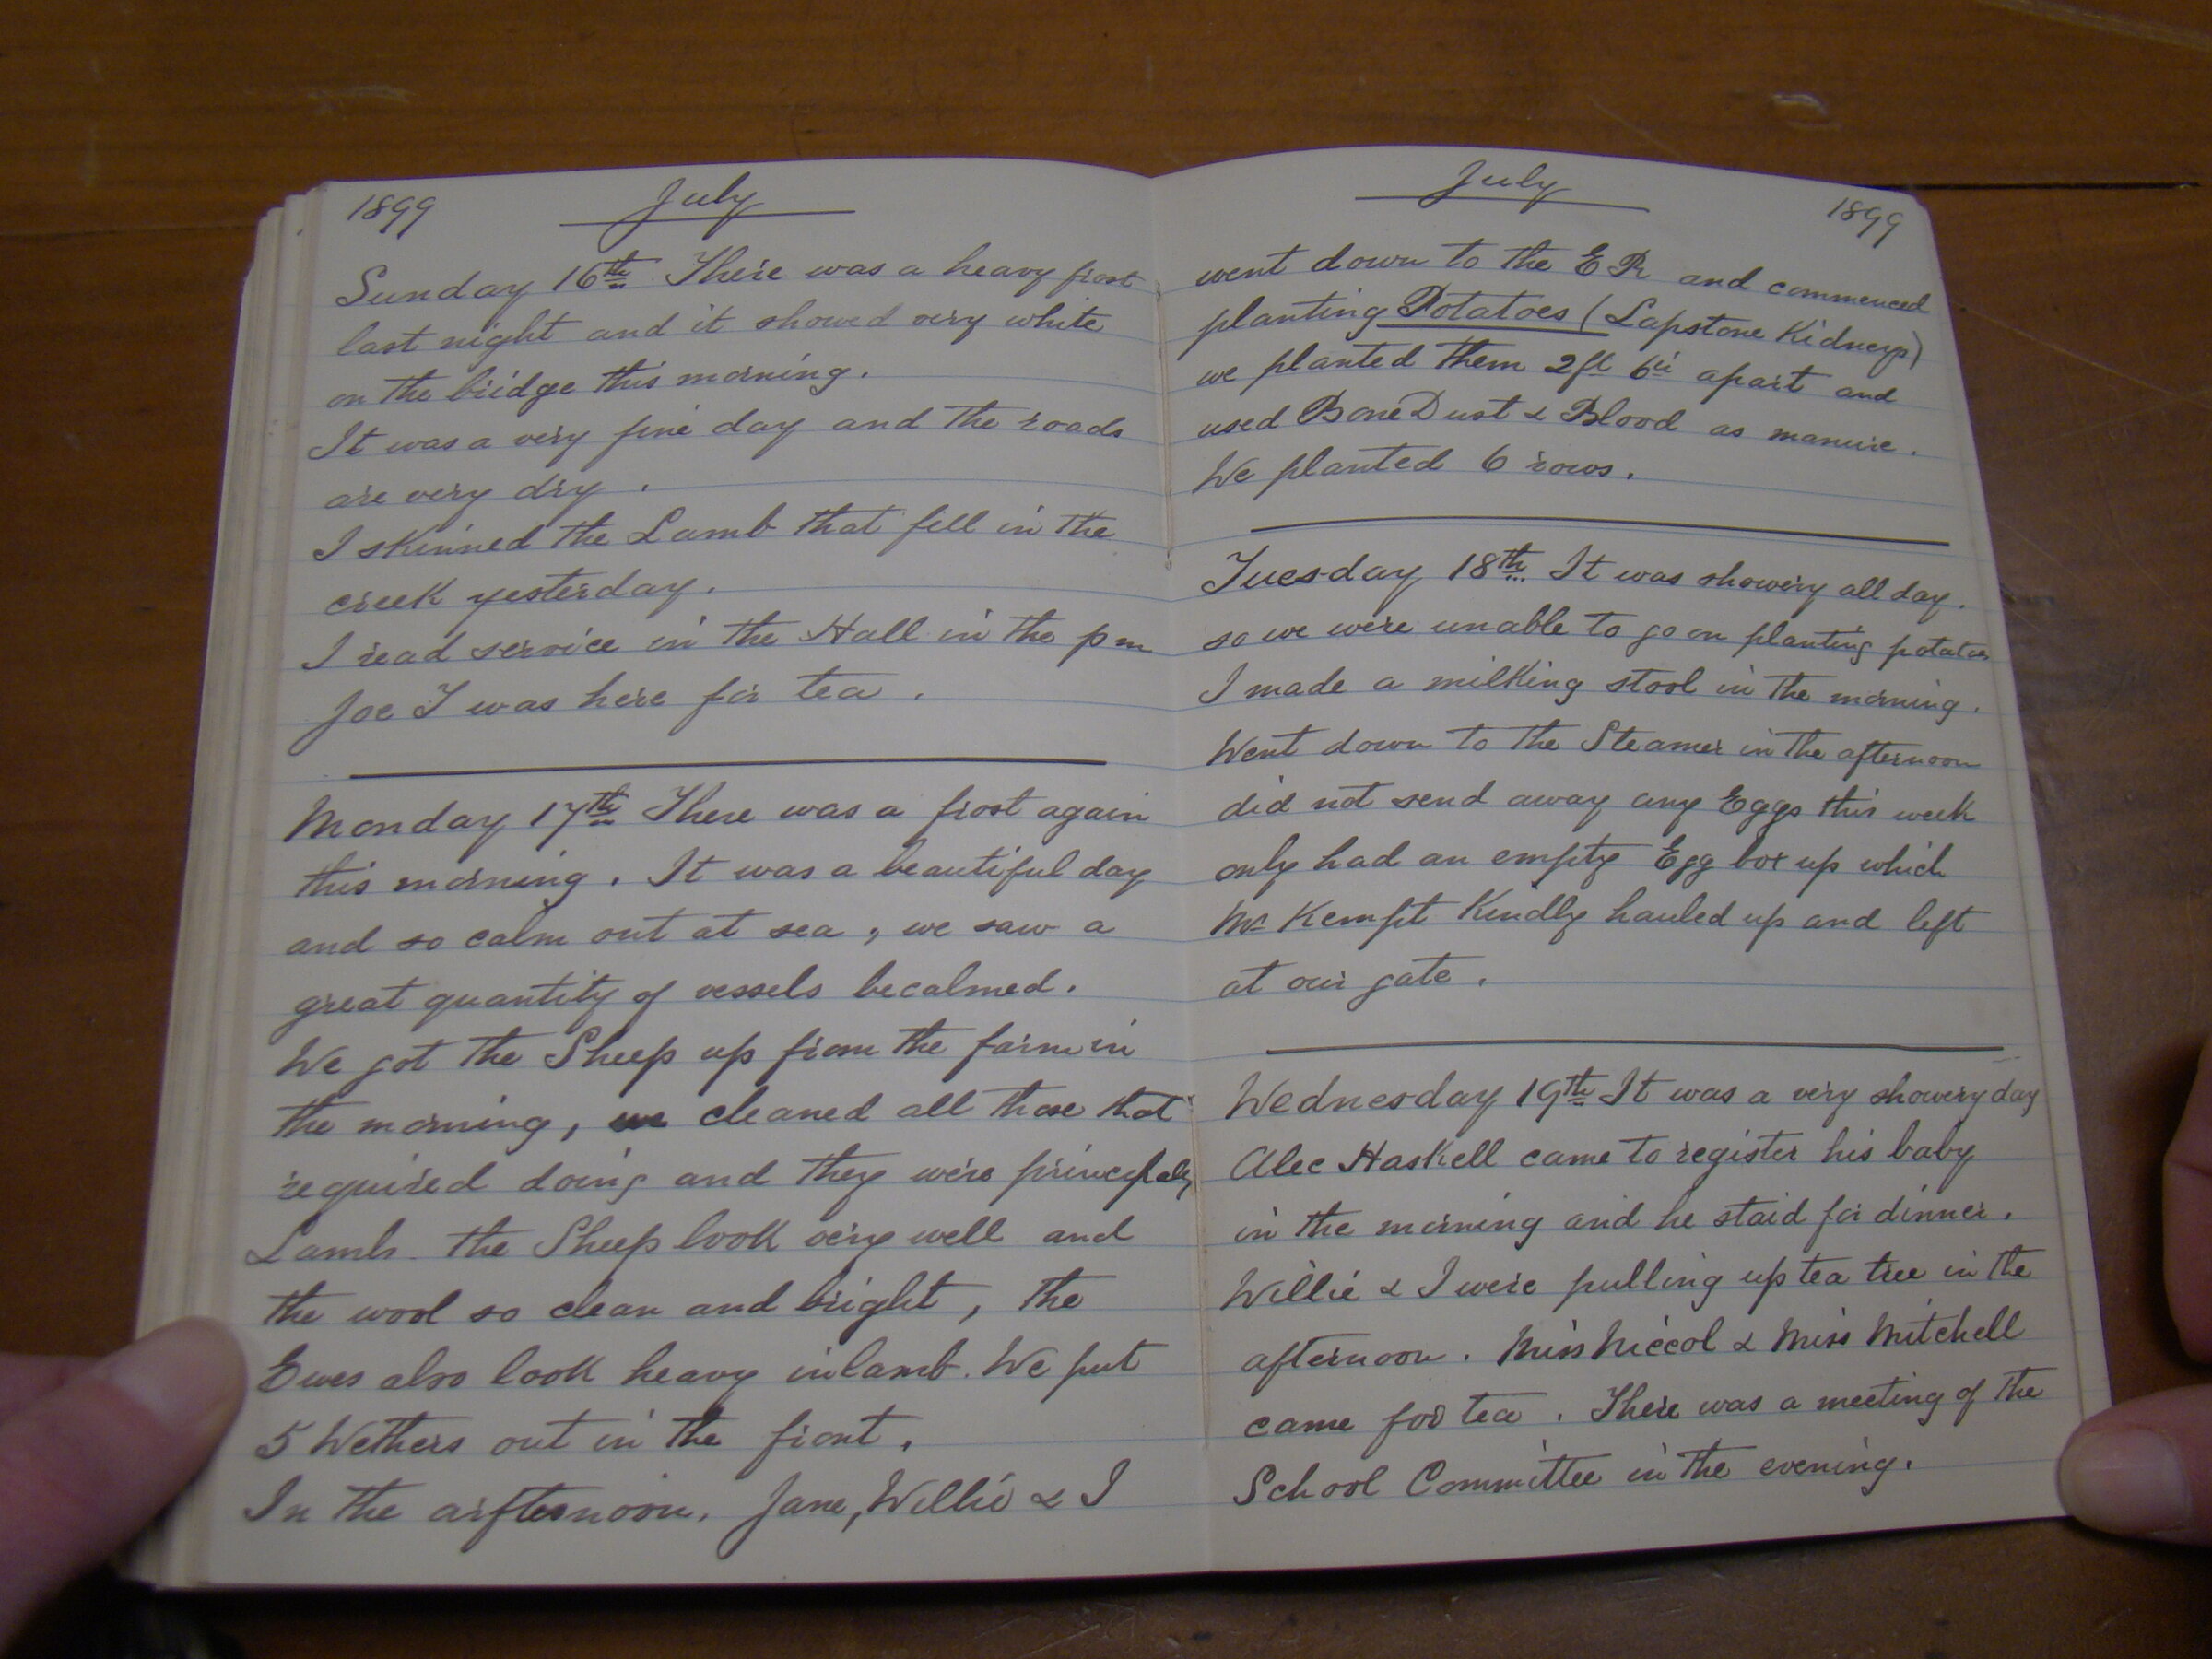 1899 July
Sunday 16th There was a heavy frost
last night and it showed very white
on the bridge this morning.
It was a very fine day and the roads
are very dry.
I skinned the Lamb that fell in the
creek yesterday.
I read service in the Hall in the pm
Joe T was here for tea.
Monday 17th There was a frost again
this morning. It was a beautiful day
and so calm out at sea, we saw a
great quantity of vessels becalmed.
We got the Sheep up from the farm in
the morning, cleaned all those that
required doing and they were principaly
Lambs. the Sheep look very well and
the wool so clean and bright, the
Ewes also look heavy in lamb. We put
5 Wethers out in the front.
In the arfternoon. Jane, Willie & I
July 1899
went down to the ER and commenced
planting Potatoes (Lapstone Kidneys)
we planted them 2ft 6in apart and
used Bone Dust & Blood as manure.
We planted 6 rows.
Tuesday 18th It was showery all day.
so we were unable to go on planting potatoes
I made a milking stool in the morning.
Went down to the Steamer in the afternoon
did not send away any Eggs this week
only had an empty Egg box up which
Mr Kempt Kindly hauled up and left
at our gate.
Wednesday 19th It was a very showery day
Alec Haskell came to register his baby
in the morning and he staid for dinner.
Willie & I were pulling up tea tree in the
afternoon. Miss Niccol & Miss Mitchell
came for tea. There was a meeting of the
School Committee in the evening.